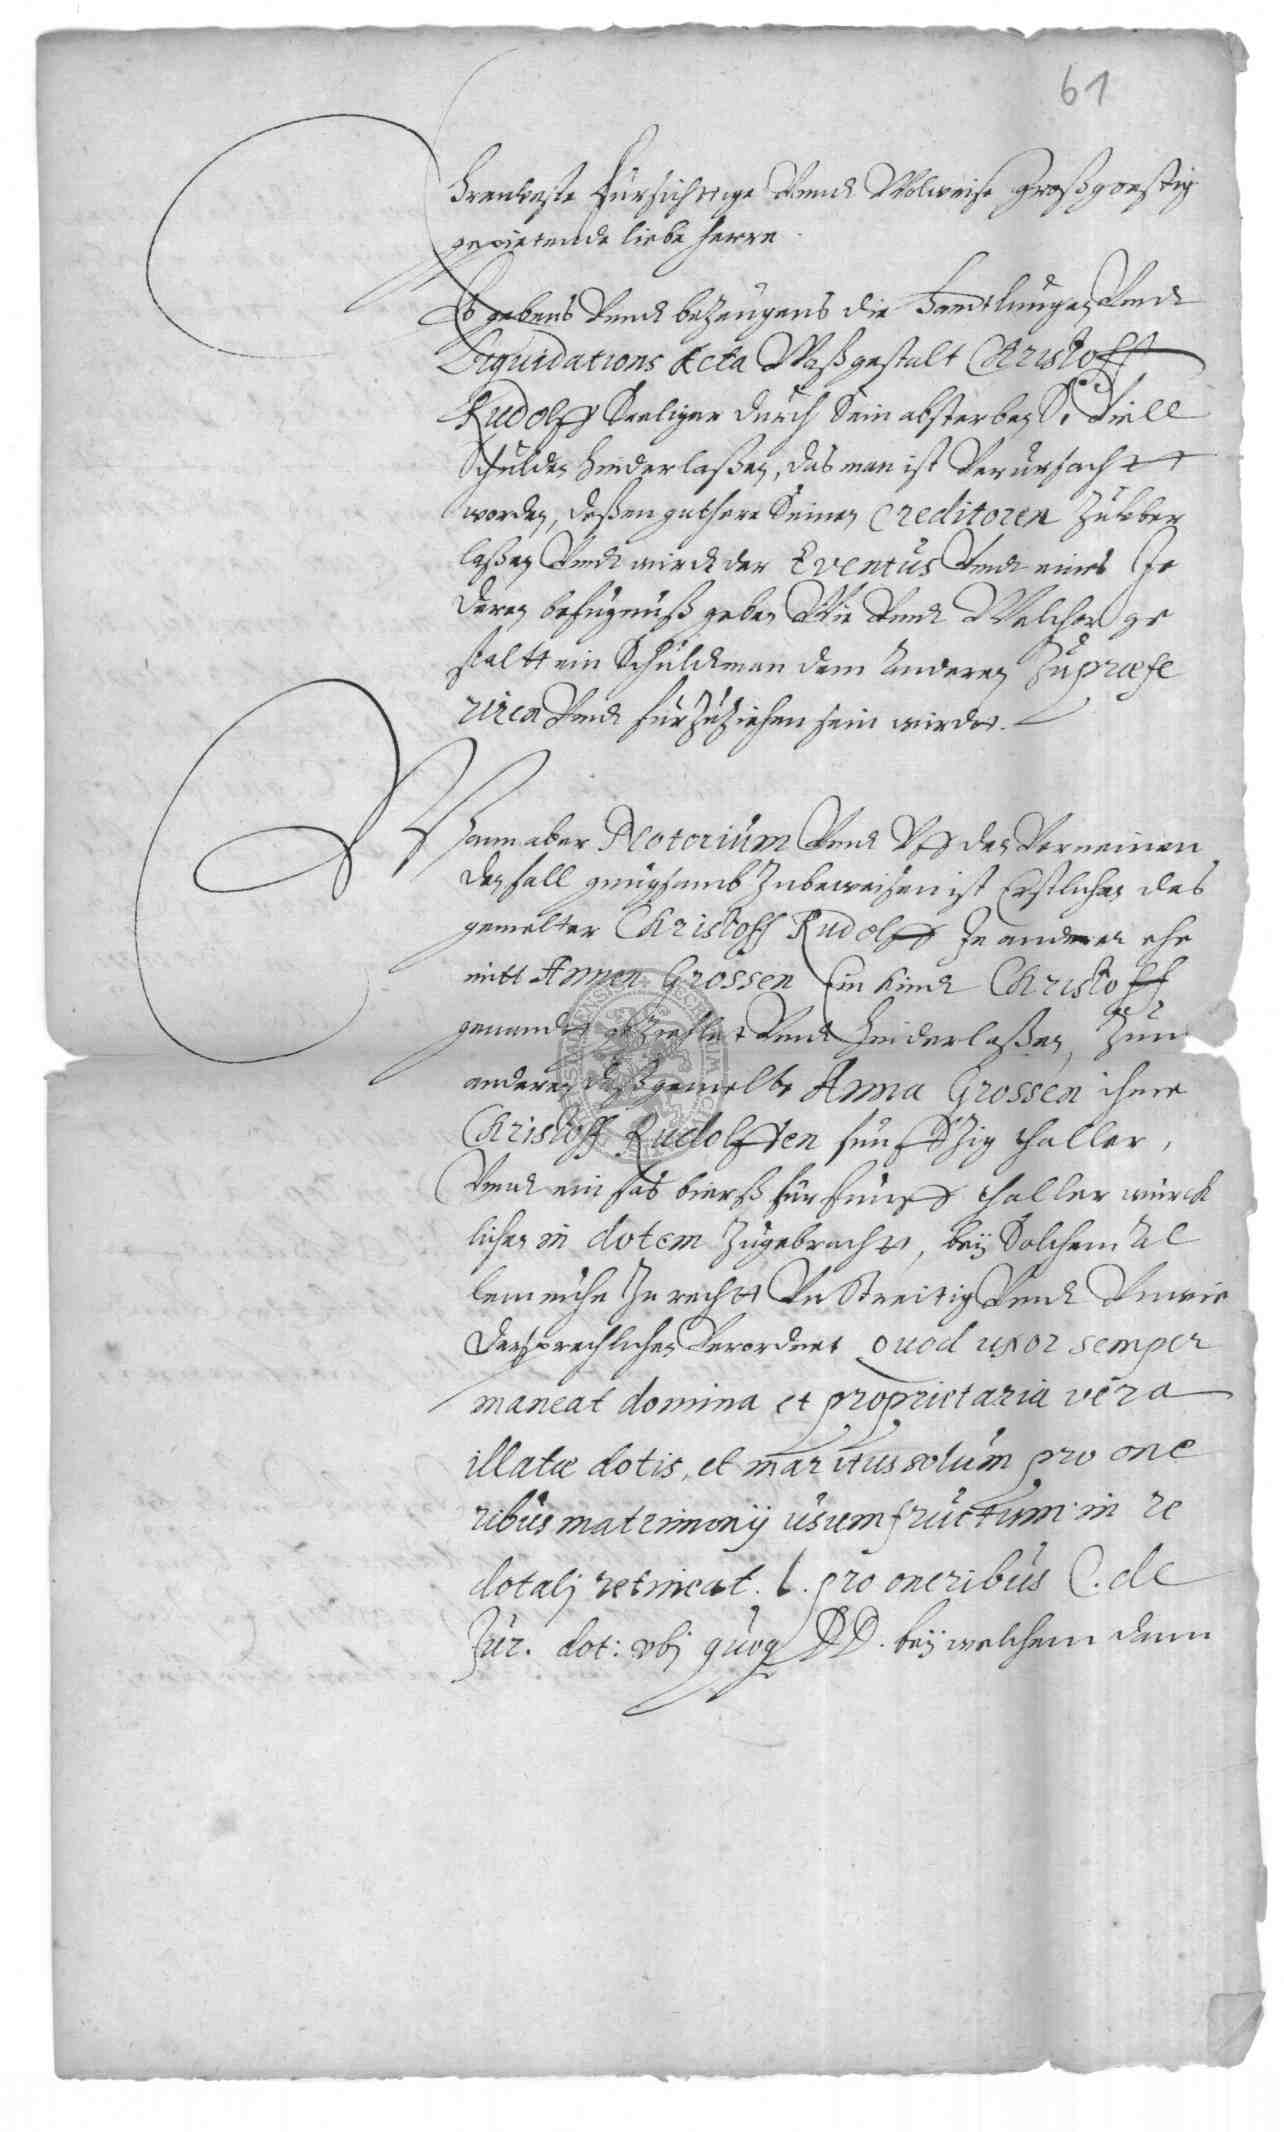 61
Ehrenveste Fürsichtige Vnnd Wolweise Großgonstig
gepietende liebe herrn.
Es gebens Vnnd bezeugens die handtlungen Vnnd
Liquidations Acta Waßgestalt Christoff
Rudolff Seeliger durch Sein absterben So Viell
Schulden hinderlaßen, das man ist Verursachtt
worden, deßen guthere Seinen Creditoren Zuuber
laßen Vnnd wirdt der Eventus Vnnd eines Je
deren befugnuß geben Wie Vnnd Welcher ge
staltt ein Schuldtman dem Anderen Zu præfe
riren Vnnd fürZuZiehen sein wirdt.
Wann aber Notorium Vnnd Vff den Verneinen
den fall gnugsamb Zubeweisen ist Erstlichen das
gemelter Christoff Rudolff In anderer ehe
mitt Annen Grossen Ein Kindt Christoff
genandt erZiehlet Vnnd hinderlaßen, Zum
anderen das gemelte Anna Grossen ihme
Christoff Rudolffen fünffZig thaller,
Vnnd ein fas bierß für fünff thaller würck
lichen in dotem Zugebracht, bey Solchem Al
lem nuhn Zu recht VnStreitig Vnnd Vnwie
dersprechlichen Verordnet quod uxor semper
maneat domina et proprietaria vera
illatæ dotis, et maritus solùm pro one
ribus matrimonij usumfructum in re
dotalj retineat. l. pro oneribus C. de
Jur. dot: vbj quoq DD. bey welchem dann